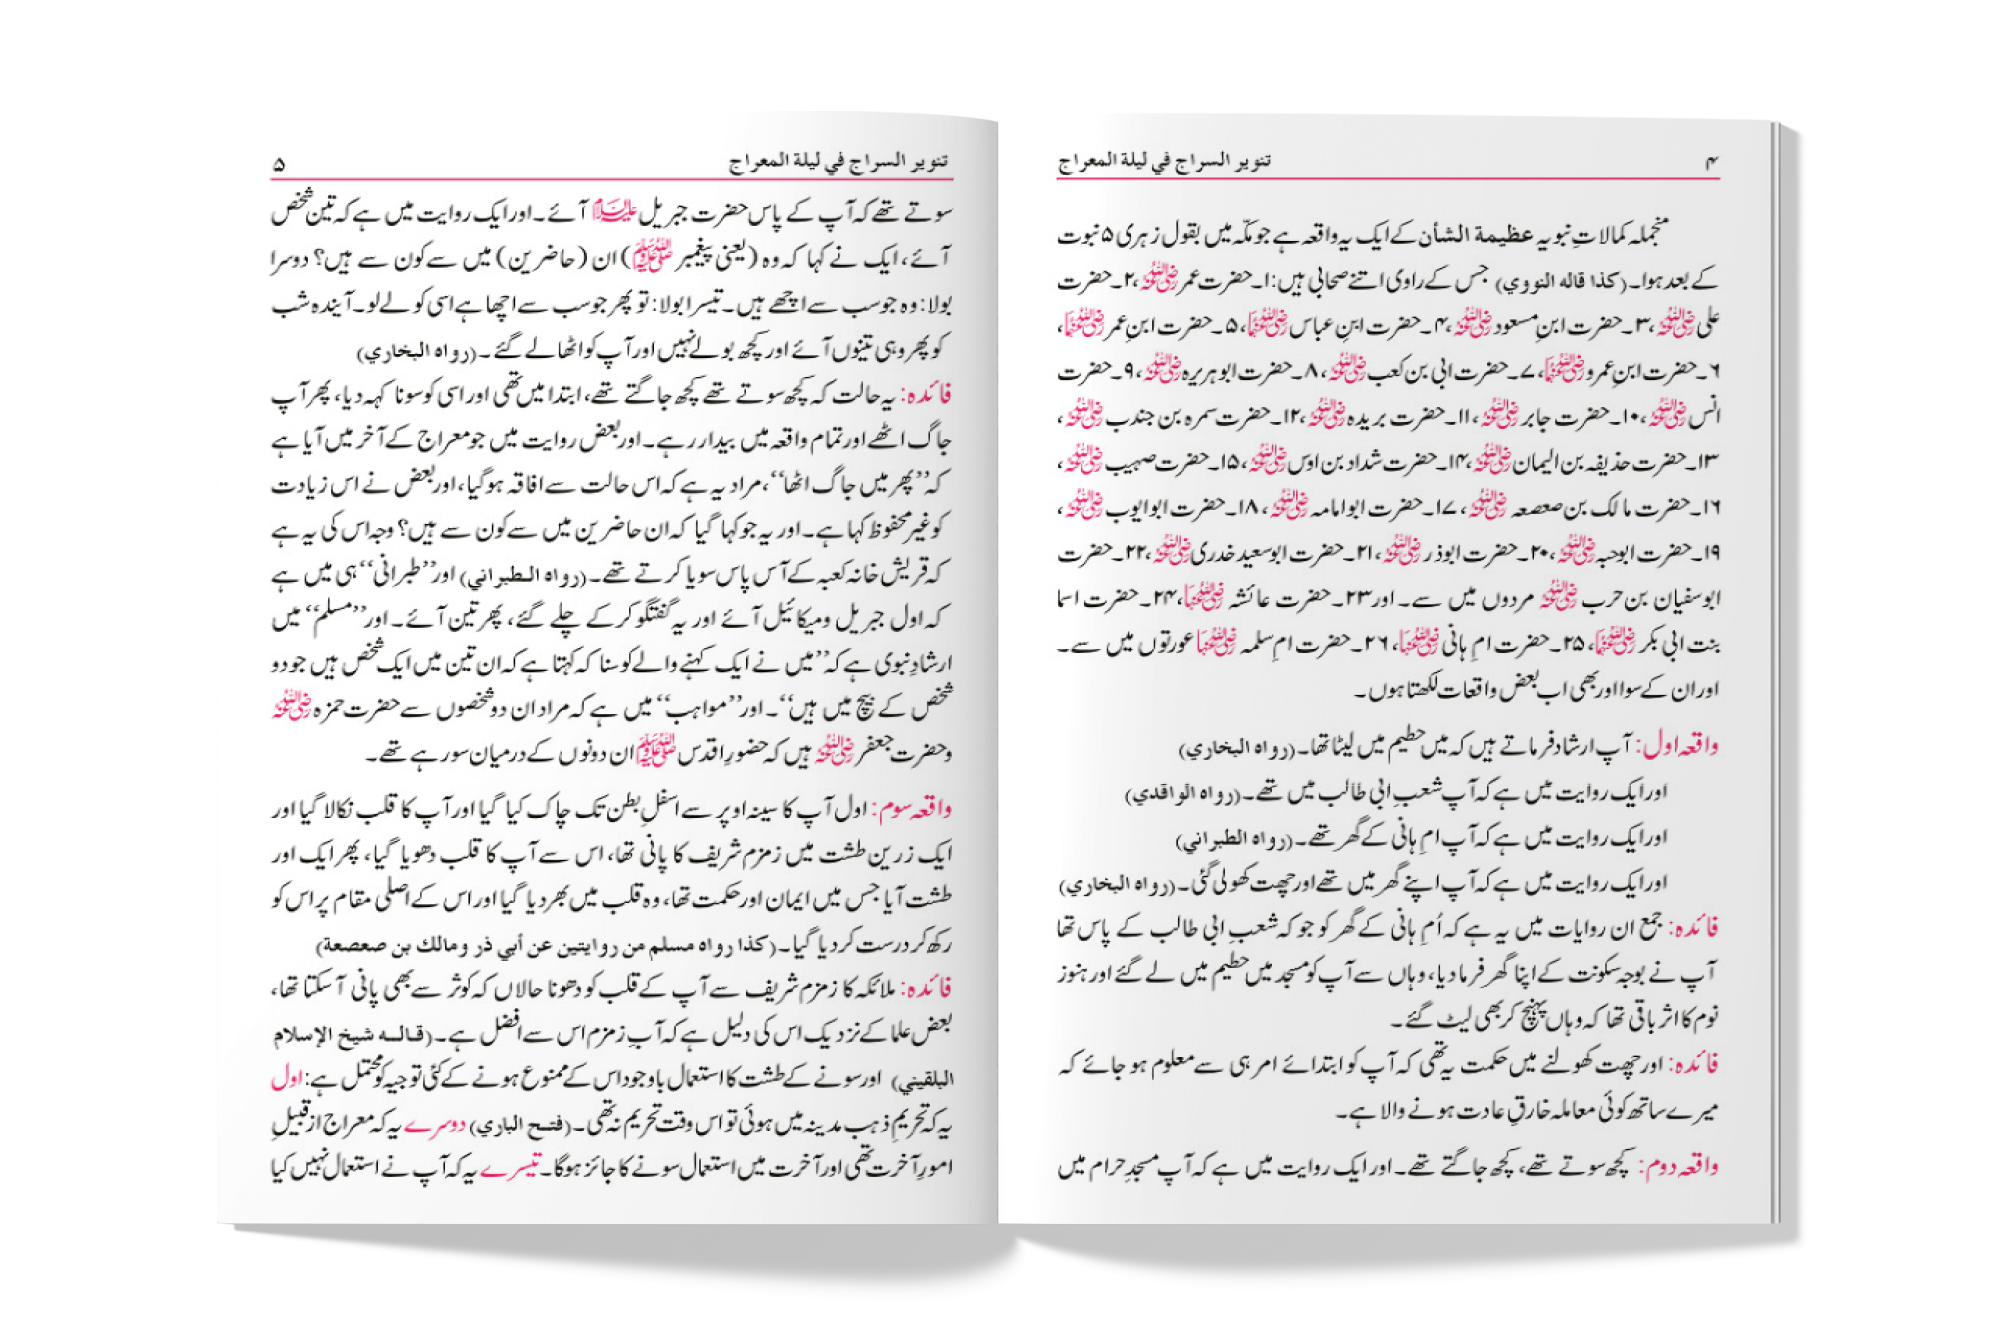 ۴ تنویر السراج في ليلة المعراج
منجملہ کمالاتِ نبویہ عظيمة الشأن کے ایک یہ واقعہ ہے جو مکّہ میں بقول زہری ۵ نبوت
کے بعد ہوا۔ (كذا قاله النووي) جس کے راوی اتنے صحابی ہیں: ۱۔ حضرت عمر رضی اللہ عنہ، ۲۔ حضرت
علی رضی اللہ عنہ، ۳۔ حضرت ابنِ مسعود رضی اللہ عنہ، ۴۔ حضرت ابنِ عباس رضی اللہ عنہما، ۵۔ حضرت ابنِ عمر رضی اللہ عنہما،
۶۔ حضرت ابنِ عمرو رضی اللہ عنہما، ۷۔ حضرت ابی بن کعب رضی اللہ عنہ، ۸۔ حضرت ابوہریرہ رضی اللہ عنہ، ۹۔ حضرت
انس رضی اللہ عنہ، ۱۰۔ حضرت جابر رضی اللہ عنہ، ۱۱۔ حضرت بریدہ رضی اللہ عنہ، ۱۲۔ حضرت سمرہ بن جندب رضی اللہ عنہ،
۱۳۔ حضرت حذیفہ بن الیمان رضی اللہ عنہ، ۱۴۔ حضرت شداد بن اوس رضی اللہ عنہ، ۱۵۔ حضرت صہیب رضی اللہ عنہ،
۱۶۔ حضرت مالک بن صعصعہ رضی اللہ عنہ، ۱۷۔ حضرت ابوامامہ رضی اللہ عنہ، ۱۸۔ حضرت ابوایوب رضی اللہ عنہ،
۱۹۔ حضرت ابوحبہ رضی اللہ عنہ، ۲۰۔ حضرت ابوذر رضی اللہ عنہ، ۲۱۔ حضرت ابوسعید خدری رضی اللہ عنہ، ۲۲۔ حضرت
ابوسفیان بن حرب رضی اللہ عنہ مردوں میں سے۔ اور ۲۳۔ حضرت عائشہ رضی اللہ عنہا، ۲۴۔ حضرت اسما
بنت ابی بکر رضی اللہ عنہما، ۲۵۔ حضرت امِ ہانی رضی اللہ عنہا، ۲۶۔ حضرت امِ سلمہ رضی اللہ عنہا عورتوں میں سے۔
اور ان کے سوا اور بھی اب بعض واقعات لکھتا ہوں۔
واقعہ اول: آپ ارشاد فرماتے ہیں کہ میں حطیم میں لیٹا تھا۔ (رواه البخاري)
اور ایک روایت میں ہے کہ آپ شعبِ ابی طالب میں تھے۔ (رواه الواقدي)
اور ایک روایت میں ہے کہ آپ امِ ہانی کے گھر تھے۔ (رواه الطبراني)
اور ایک روایت میں ہے کہ آپ اپنے گھر میں تھے اور چھت کھولی گئی۔ (رواه البخاري)
فائدہ: جمع ان روایات میں یہ ہے کہ اُمِ ہانی کے گھر کو جو کہ شعبِ ابی طالب کے پاس تھا
آپ نے بوجہ سکونت کے اپنا گھر فرما دیا، وہاں سے آپ کو مسجد میں حطیم میں لے گئے اور ہنوز
نوم کا اثر باقی تھا کہ وہاں پہنچ کر بھی لیٹ گئے۔
فائدہ: اور چھت کھولنے میں حکمت یہ تھی کہ آپ کو ابتدائے امر ہی سے معلوم ہو جائے کہ
میرے ساتھ کوئی معاملہ خارقِ عادت ہونے والا ہے۔
واقعہ دوم: کچھ سوتے تھے، کچھ جاگتے تھے۔ اور ایک روایت میں ہے کہ آپ مسجدِ حرام میں
تنوير السراج في ليلة المعراج ۵
سوتے تھے کہ آپ کے پاس حضرت جبریل علیہ السلام آئے۔ اور ایک روایت میں ہے کہ تین شخص
آئے، ایک نے کہا کہ وہ (یعنی پیغمبر ﷺ) ان (حاضرین) میں سے کون سے ہیں؟ دوسرا
بولا: وہ جو سب سے اچھے ہیں۔ تیسرا بولا: تو پھر جو سب سے اچھا ہے اسی کو لے لو۔ آیندہ شب
کو پھر وہی تینوں آئے اور کچھ بولے نہیں اور آپ کو اٹھا لے گئے۔ (رواه البخاري)
فائدہ: یہ حالت کہ کچھ سوتے تھے کچھ جاگتے تھے، ابتدا میں تھی اور اسی کو سونا کہہ دیا، پھر آپ
جاگ اٹھے اور تمام واقعہ میں بیدار رہے۔ اور بعض روایت میں جو معراج کے آخر میں آیا ہے
کہ ’’پھر میں جاگ اٹھا‘‘، مراد یہ ہے کہ اس حالت سے افاقہ ہو گیا، اور بعض نے اس زیادت
کو غیر محفوظ کہا ہے۔ اور یہ جو کہا گیا کہ ان حاضرین میں سے کون سے ہیں؟ وجہ اس کی یہ ہے
کہ قریش خانہ کعبہ کے آس پاس سویا کرتے تھے۔ (رواه الطبراني) اور ’’طبرانی‘‘ ہی میں ہے
کہ اول جبریل و میکائیل آئے اور یہ گفتگو کر کے چلے گئے، پھر تین آئے۔ اور ’’مسلم‘‘ میں
ارشادِ نبوی ہے کہ ’’میں نے ایک کہنے والے کو سنا کہ کہتا ہے کہ ان تین میں ایک شخص ہیں جو دو
شخص کے بیچ میں ہیں‘‘۔ اور ’’مواہب‘‘ میں ہے کہ مراد ان دو شخصوں سے حضرت حمزہ رضی اللہ عنہ
و حضرت جعفر رضی اللہ عنہ ہیں کہ حضورِ اقدس ﷺ ان دونوں کے درمیان سو رہے تھے۔
واقعہ سوم: اول آپ کا سینہ اوپر سے اسفلِ بطن تک چاک کیا گیا اور آپ کا قلب نکالا گیا اور
ایک زرین طشت میں زمزم شریف کا پانی تھا، اس سے آپ کا قلب دھویا گیا، پھر ایک اور
طشت آیا جس میں ایمان اور حکمت تھا، وہ قلب میں بھر دیا گیا اور اس کے اصلی مقام پر اس کو
رکھ کر درست کر دیا گیا۔ (كذا رواه مسلم من روايتين عن أبي ذر ومالك بن صعصعة)
فائدہ: ملائکہ کا زمزم شریف سے آپ کے قلب کو دھونا حالاں کہ کوثر سے بھی پانی آ سکتا تھا،
بعض علما کے نزدیک اس کی دلیل ہے کہ آبِ زمزم اس سے افضل ہے۔ (قاله شيخ الإسلام
البلقيني) اور سونے کے طشت کا استعمال باوجود اس کے ممنوع ہونے کے کئی توجیہ کو محتمل ہے: اول
یہ کہ تحریمِ ذہب مدینہ میں ہوئی تو اس وقت تحریم نہ تھی۔ (فتح الباري) دوسرے یہ کہ معراج از قبیلِ
امورِ آخرت تھی اور آخرت میں استعمال سونے کا جائز ہوگا۔ تیسرے یہ کہ آپ نے استعمال نہیں کیا